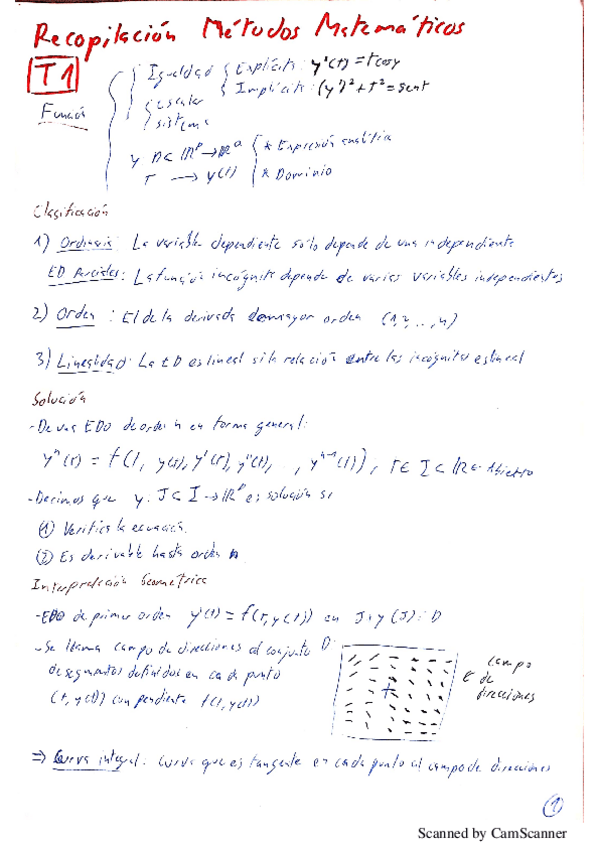 Recopilación Métodos Matemáticos
T1
Igualdad { Explícita: y'(t) = t cos y
Implícita: (y')² + t² = sent
Función
escalar
sistema
y D⊂ℝᵖ→ℝᵠ * Expresión analítica
t → y(t) * Dominio
Clasificación
1) Ordinaria: La variable dependiente sólo depende de una independiente
ED Parciales: La función incógnita depende de varias variables independientes
2) Orden: El de la derivada de mayor orden (1,2,..,n)
3) Linealidad: La ED es lineal si la relación entre las incógnitas es lineal
Solución
- De una EDO de orden n en forma general:
yⁿ(t) = f(t, y(t), y'(t), y''(t), .., yⁿ⁻¹(t)), t∈ I⊂ℝ ← Abierto
- Decimos que y: J⊂I→ℝᵖ es solución si
(1) Verifica la ecuación.
(2) Es derivable hasta orden n
Interpretación Geométrica
- EDO de primer orden y'(t) = f(t, y(t)) en J×y(J): D
- Se llama campo de direcciones al conjunto D:
de segmentos definidos en cada punto
(t, y(t)) con pendiente f(t, y(t))
campo
de
direcciones
⇒ Curva integral: curva que es tangente en cada punto al campo de direcciones
1
Scanned by CamScanner